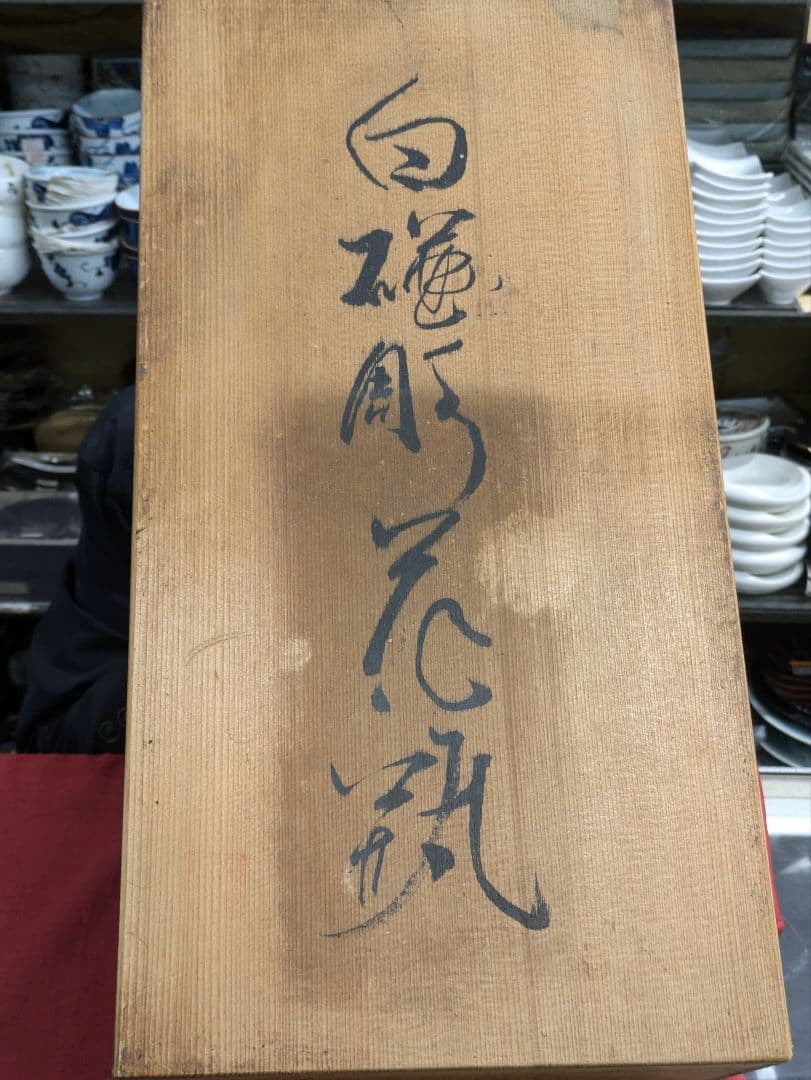 白磁彫花瓶